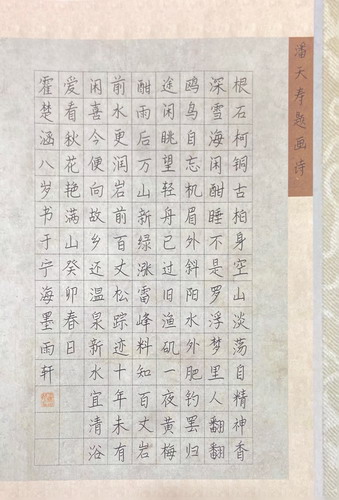 潘天寿题画诗
根石柯铜古柏身空山淡荡自精神香
深雪海闲酣睡不是罗浮梦里人翩翩
鸥鸟自忘机眉外斜阳水外肥钓罢归
途闲眺望轻舟已过旧渔矶一夜黄梅
酣雨后万山新绿涨雷峰料知百丈岩
前水更润岩前百丈松踪迹十年未有
闲喜今便向故乡还温泉新水宜清浴
爱看秋花艳满山癸卯春日
霍楚涵八岁书于宁海墨雨轩